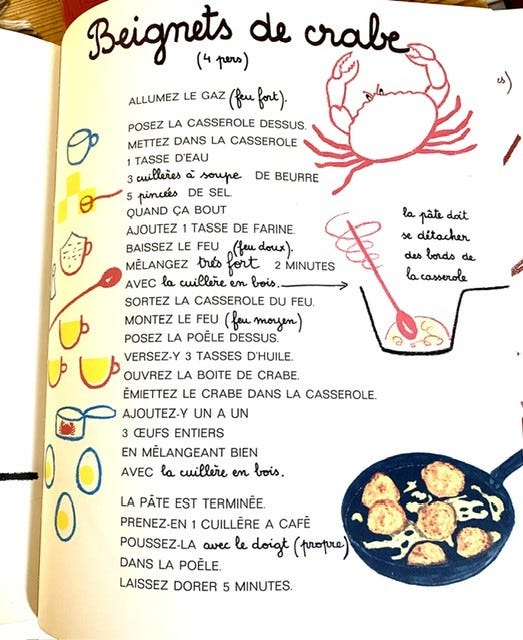 Beignets de crabe
(4 pers)
ALLUMEZ LE GAZ (feu fort).
POSEZ LA CASSEROLE DESSUS.
METTEZ DANS LA CASSEROLE
1 TASSE D'EAU
3 cuillères à soupe DE BEURRE
5 pincées DE SEL.
QUAND ÇA BOUT
AJOUTEZ 1 TASSE DE FARINE.
BAISSEZ LE FEU (feu doux).
MÊLANGEZ très fort 2 MINUTES
AVEC la cuillère en bois.
SORTEZ LA CASSEROLE DU FEU.
MONTEZ LE FEU (feu moyen)
POSEZ LA POÊLE DESSUS.
VERSEZ-Y 3 TASSES D'HUILE.
OUVREZ LA BOITE DE CRABE.
ÊMIETTEZ LE CRABE DANS LA CASSEROLE.
AJOUTEZ-Y UN A UN
3 ŒUFS ENTIERS
EN MÊLANGEANT BIEN
AVEC la cuillère en bois.
LA PÂTE EST TERMINÊE.
PRENEZ-EN 1 CUILLÊRE A CAFÊ
POUSSEZ-LA avec le doigt (propre)
DANS LA POÊLE.
LAISSEZ DORER 5 MINUTES.
la pâte doit
se détacher
des bords de
la casserole